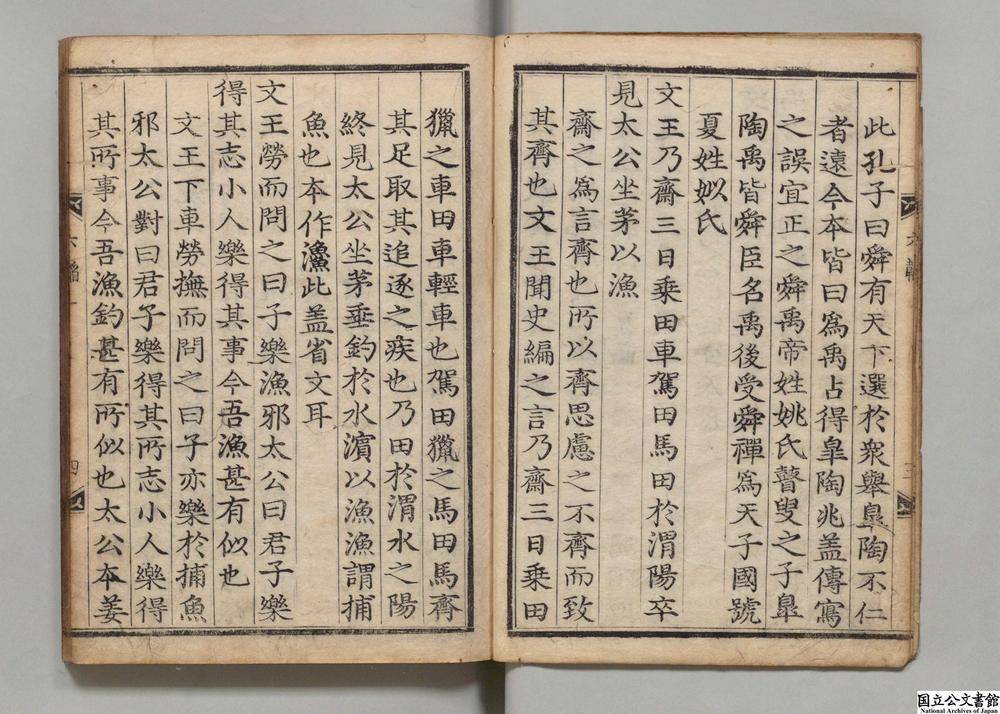 此孔子曰舜有天下選於衆舉臯陶不仁
者遠今本皆曰爲禹占得臯陶兆盖傳寫
之誤宜正之舜禹帝姓姚氏瞽叟之子臯
陶禹皆舜臣名禹後受舜禪爲天子國號
夏姓姒氏
文王乃齋三日乗田車駕田馬田於渭陽卒
見太公坐茅以漁
齋之爲言齊也所以齊思慮之不齊而致
其齊也文王聞史編之言乃齋三日乗田
獵之車田車輕車也駕田獵之馬田馬齊
其足取其追逐之疾也乃田於渭水之陽
終見太公坐茅垂釣於水濱以漁漁謂捕
魚也本作䲣此盖省文耳
文王勞而問之曰子樂漁邪太公曰君子樂
得其志小人樂得其事今吾漁甚有似也
文王下車勞撫而問之曰子亦樂於捕魚
邪太公對曰君子樂得其所志小人樂得
其所事今吾漁釣甚有所似也太公本姜
六韜一
四
国立公文書館
National Archives of Japan